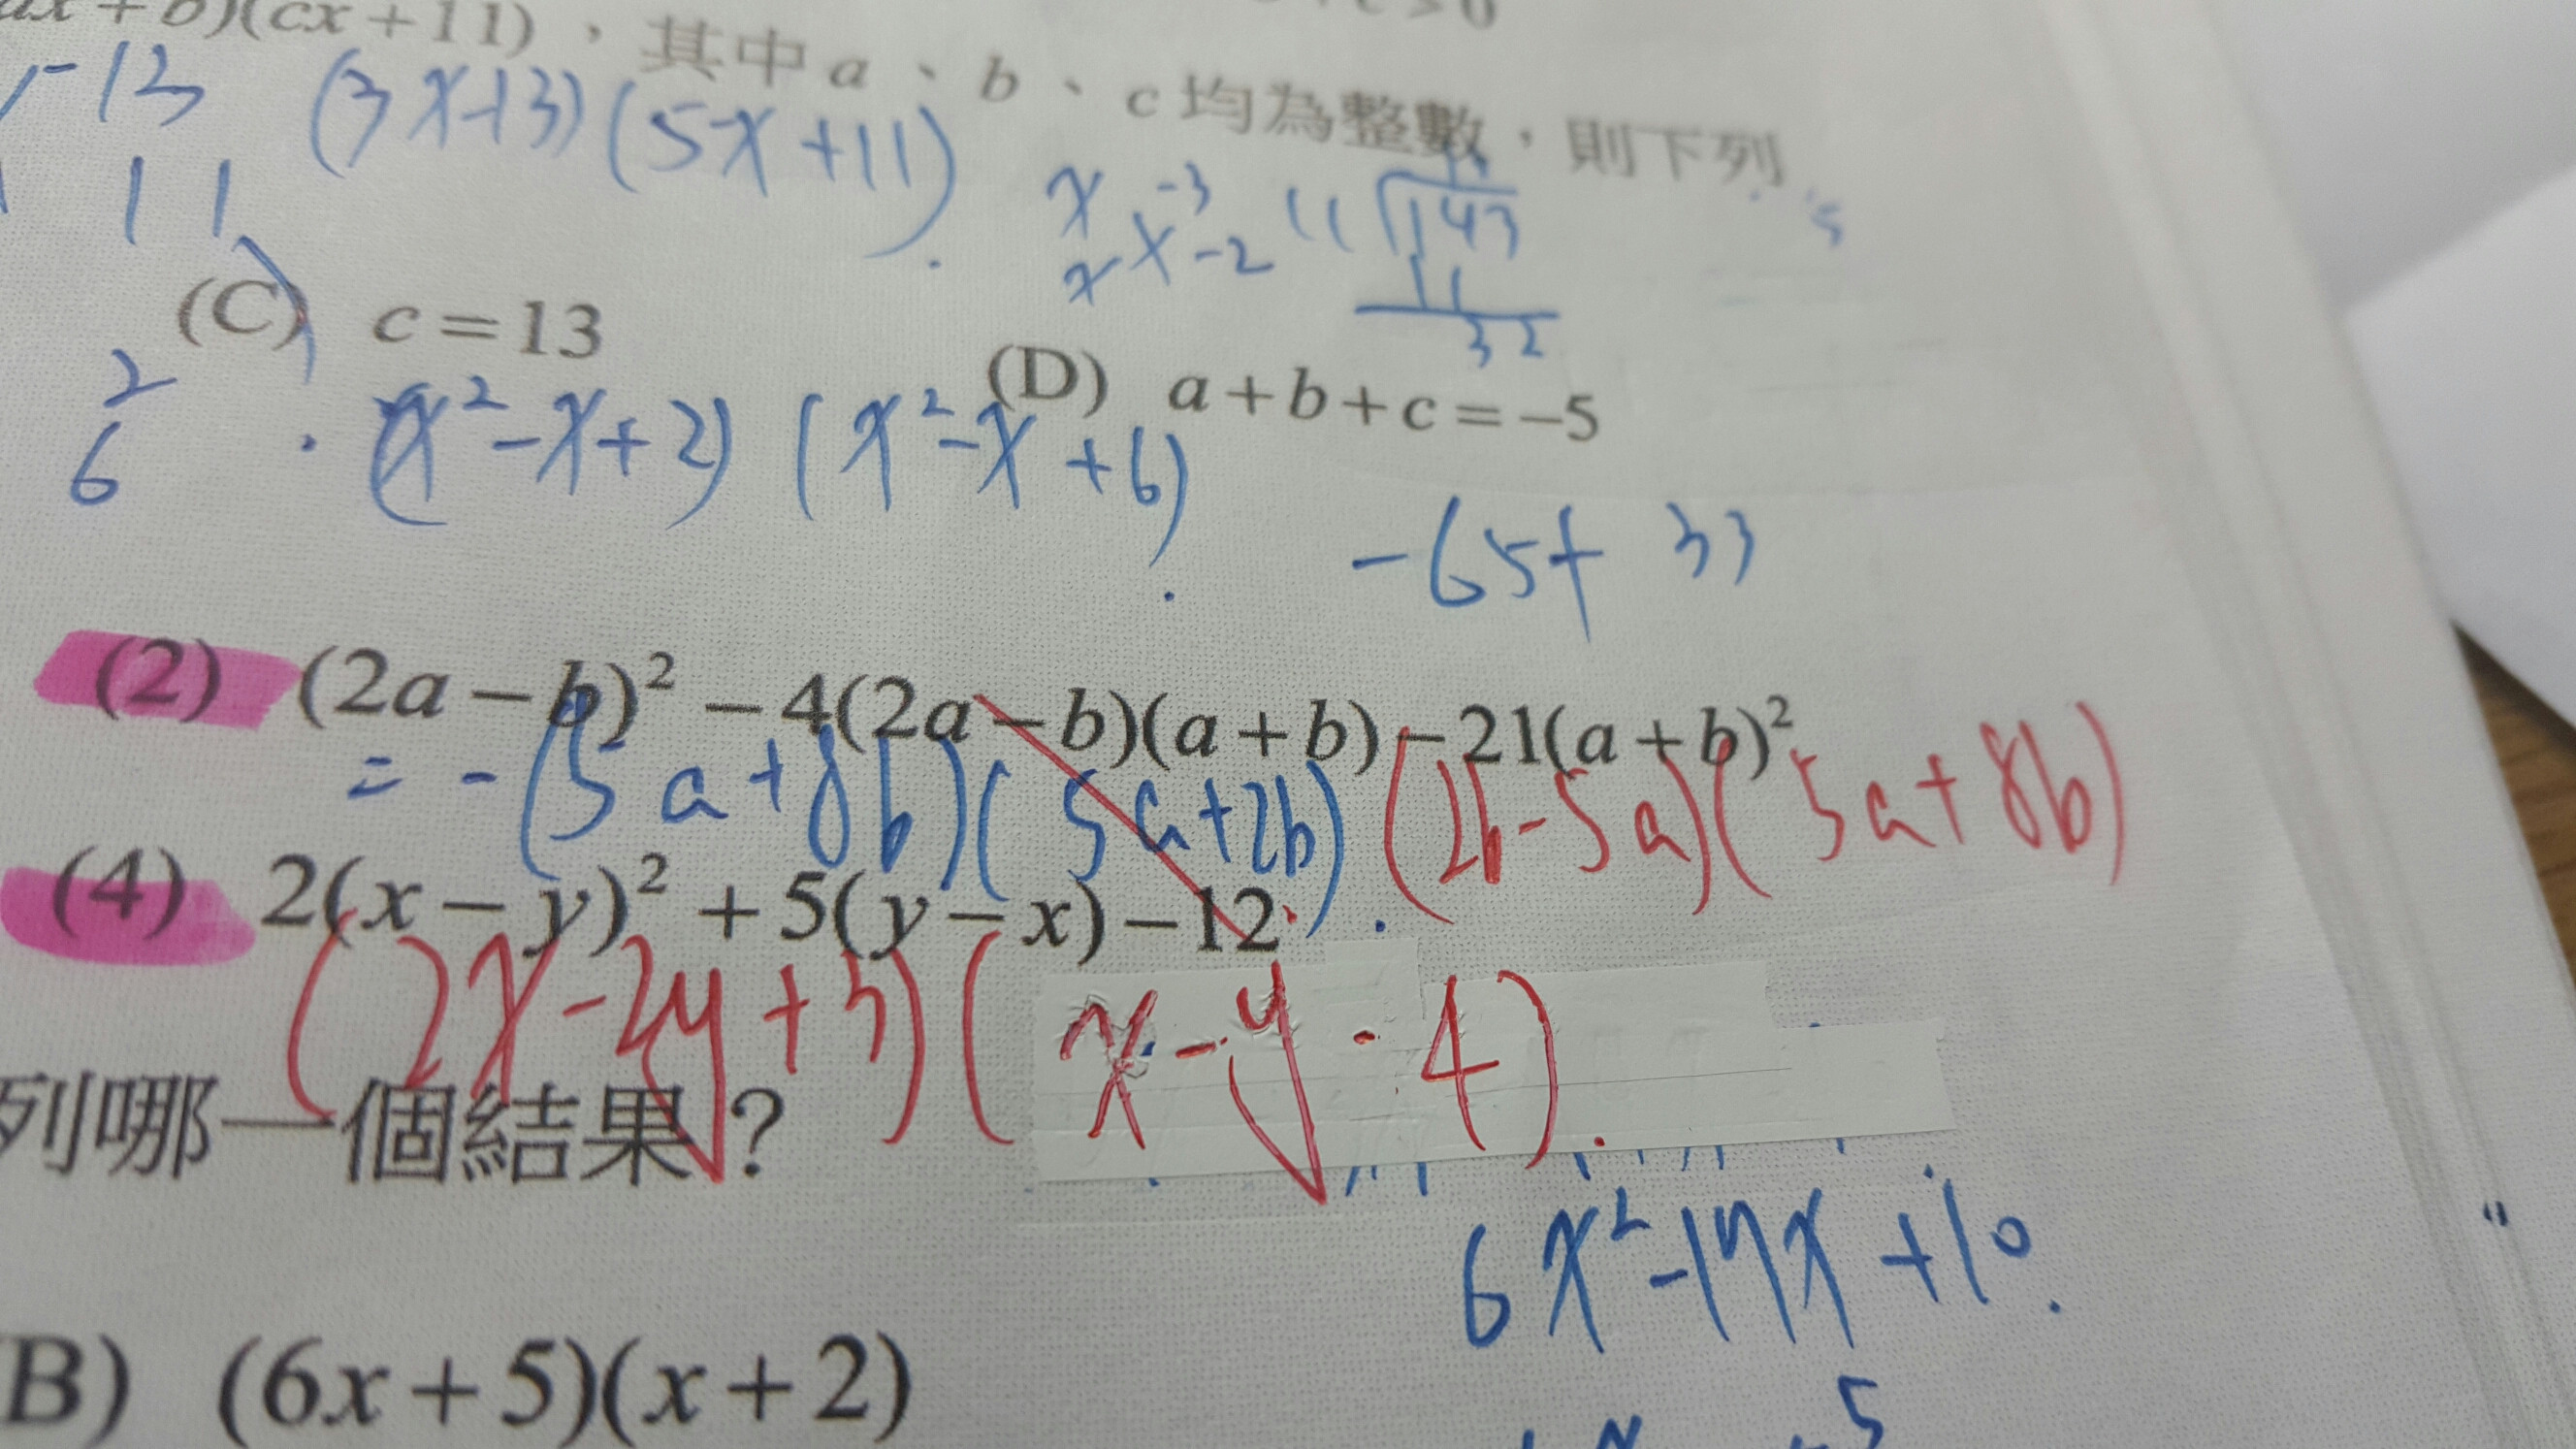 )(cx+11),其中a、b、c均為整數,則下列
-13 (3x-13)(5x+11).
11 x -3 11 143
x -2 11
32
(C) c=13
(D) a+b+c=-5
2
6 (x²-x+2)(x²-x+6).
-65+33
(2) (2a-b)²-4(2a-b)(a+b)-21(a+b)²
= -(5a+8b)(5a+2b). (2b-5a)(5a+8b)
(4) 2(x-y)²+5(y-x)-12
(2x-2y+3)(x-y-4).
列哪一個結果?
6x²-17x+10.
B) (6x+5)(x+2)
-5